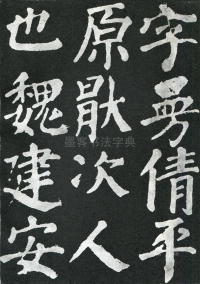 字曼倩平
原猒次人
也魏建安
墨客书法字典